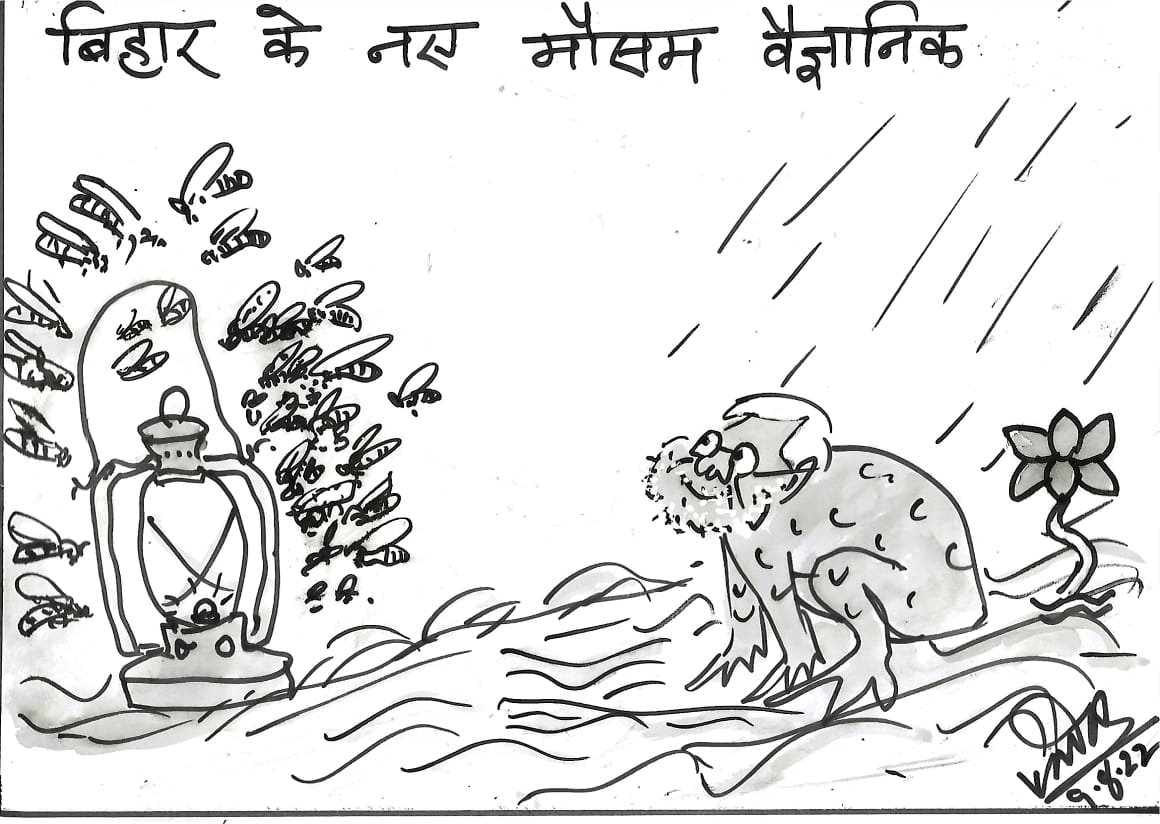 बिहार के नए मौसम वैज्ञानिक
9.8.22